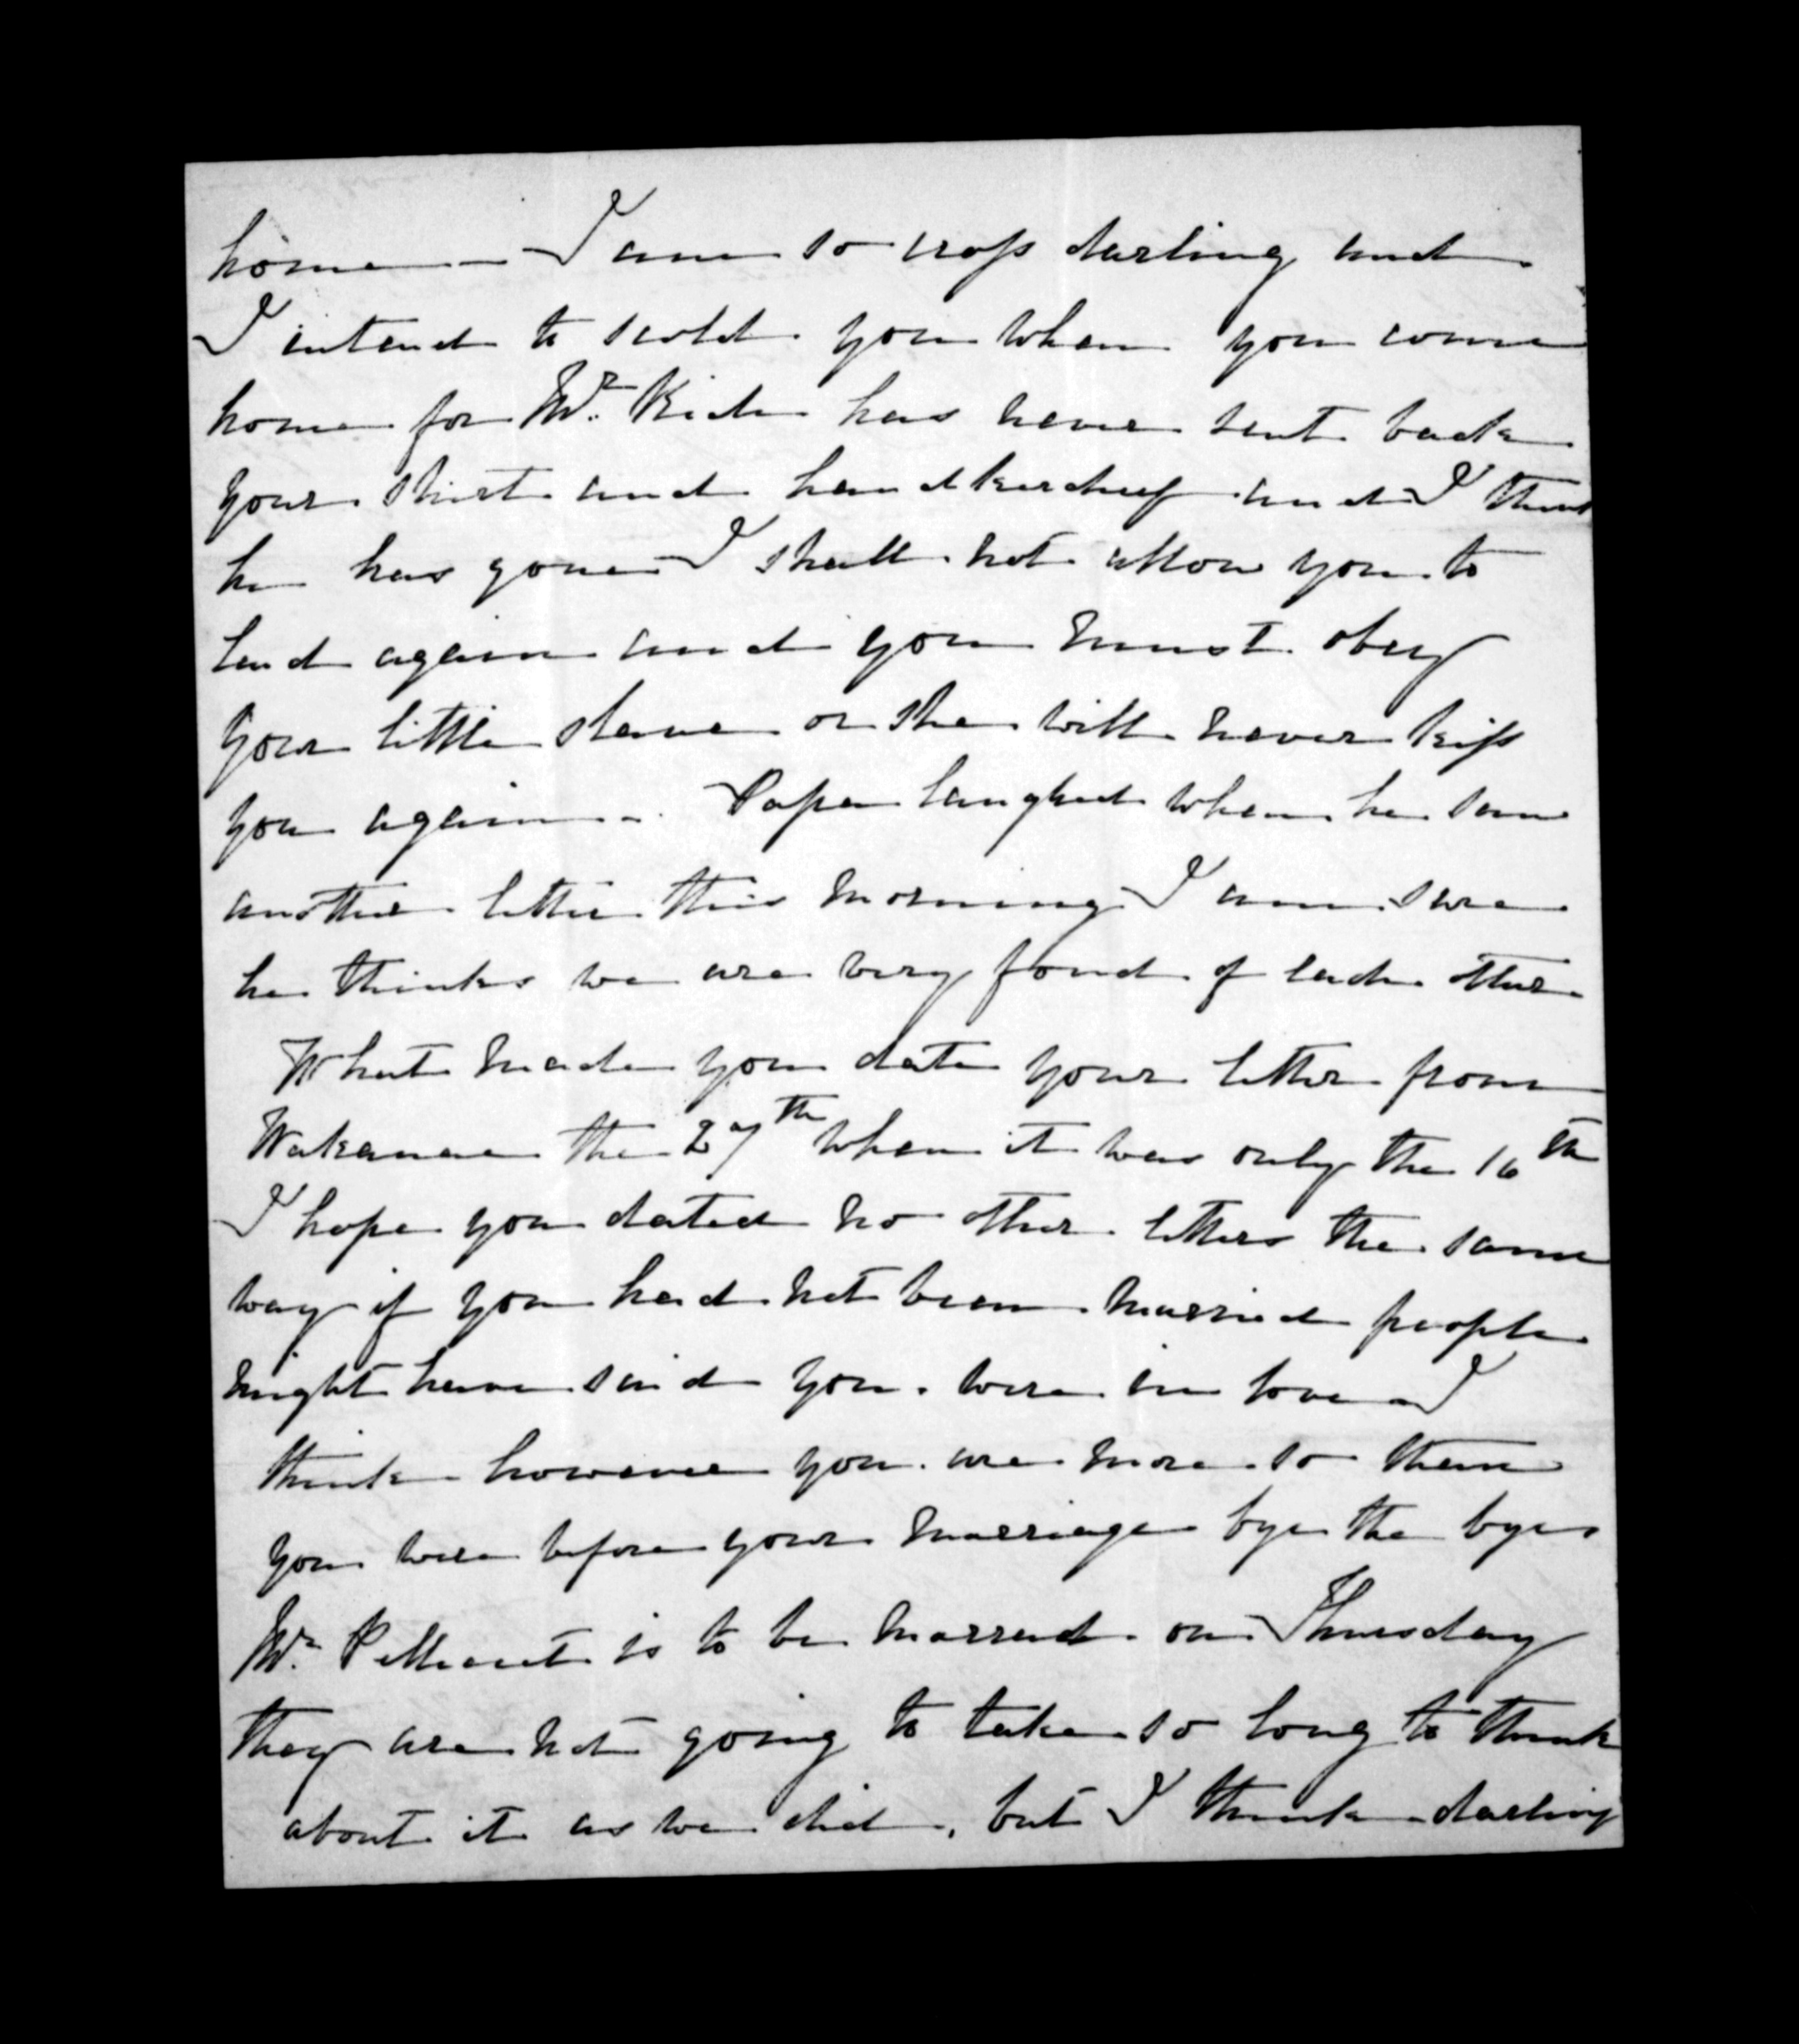 home — I am so cross darling and
I intend to scold you when you come
home for Mr. Kid has never sent back
your shirt and handkerchief and I think
he has gone I shall not allow you to
lend again and you must obey
your little slave or she will never kiss
you again — Papa laughed when he saw
another letter this morning I am sure
he thinks we are very fond of each other
What made you date your letter from
the 27th when it was only the 16th
I hope you dated no other letters the same
way if you had not been married people
might have said you were in love I
think however you are more so than
you were before your marriage bye the bye
Mr. is to be married on Thursday
they are not going to take so long to think
about it as we did, but I think darling